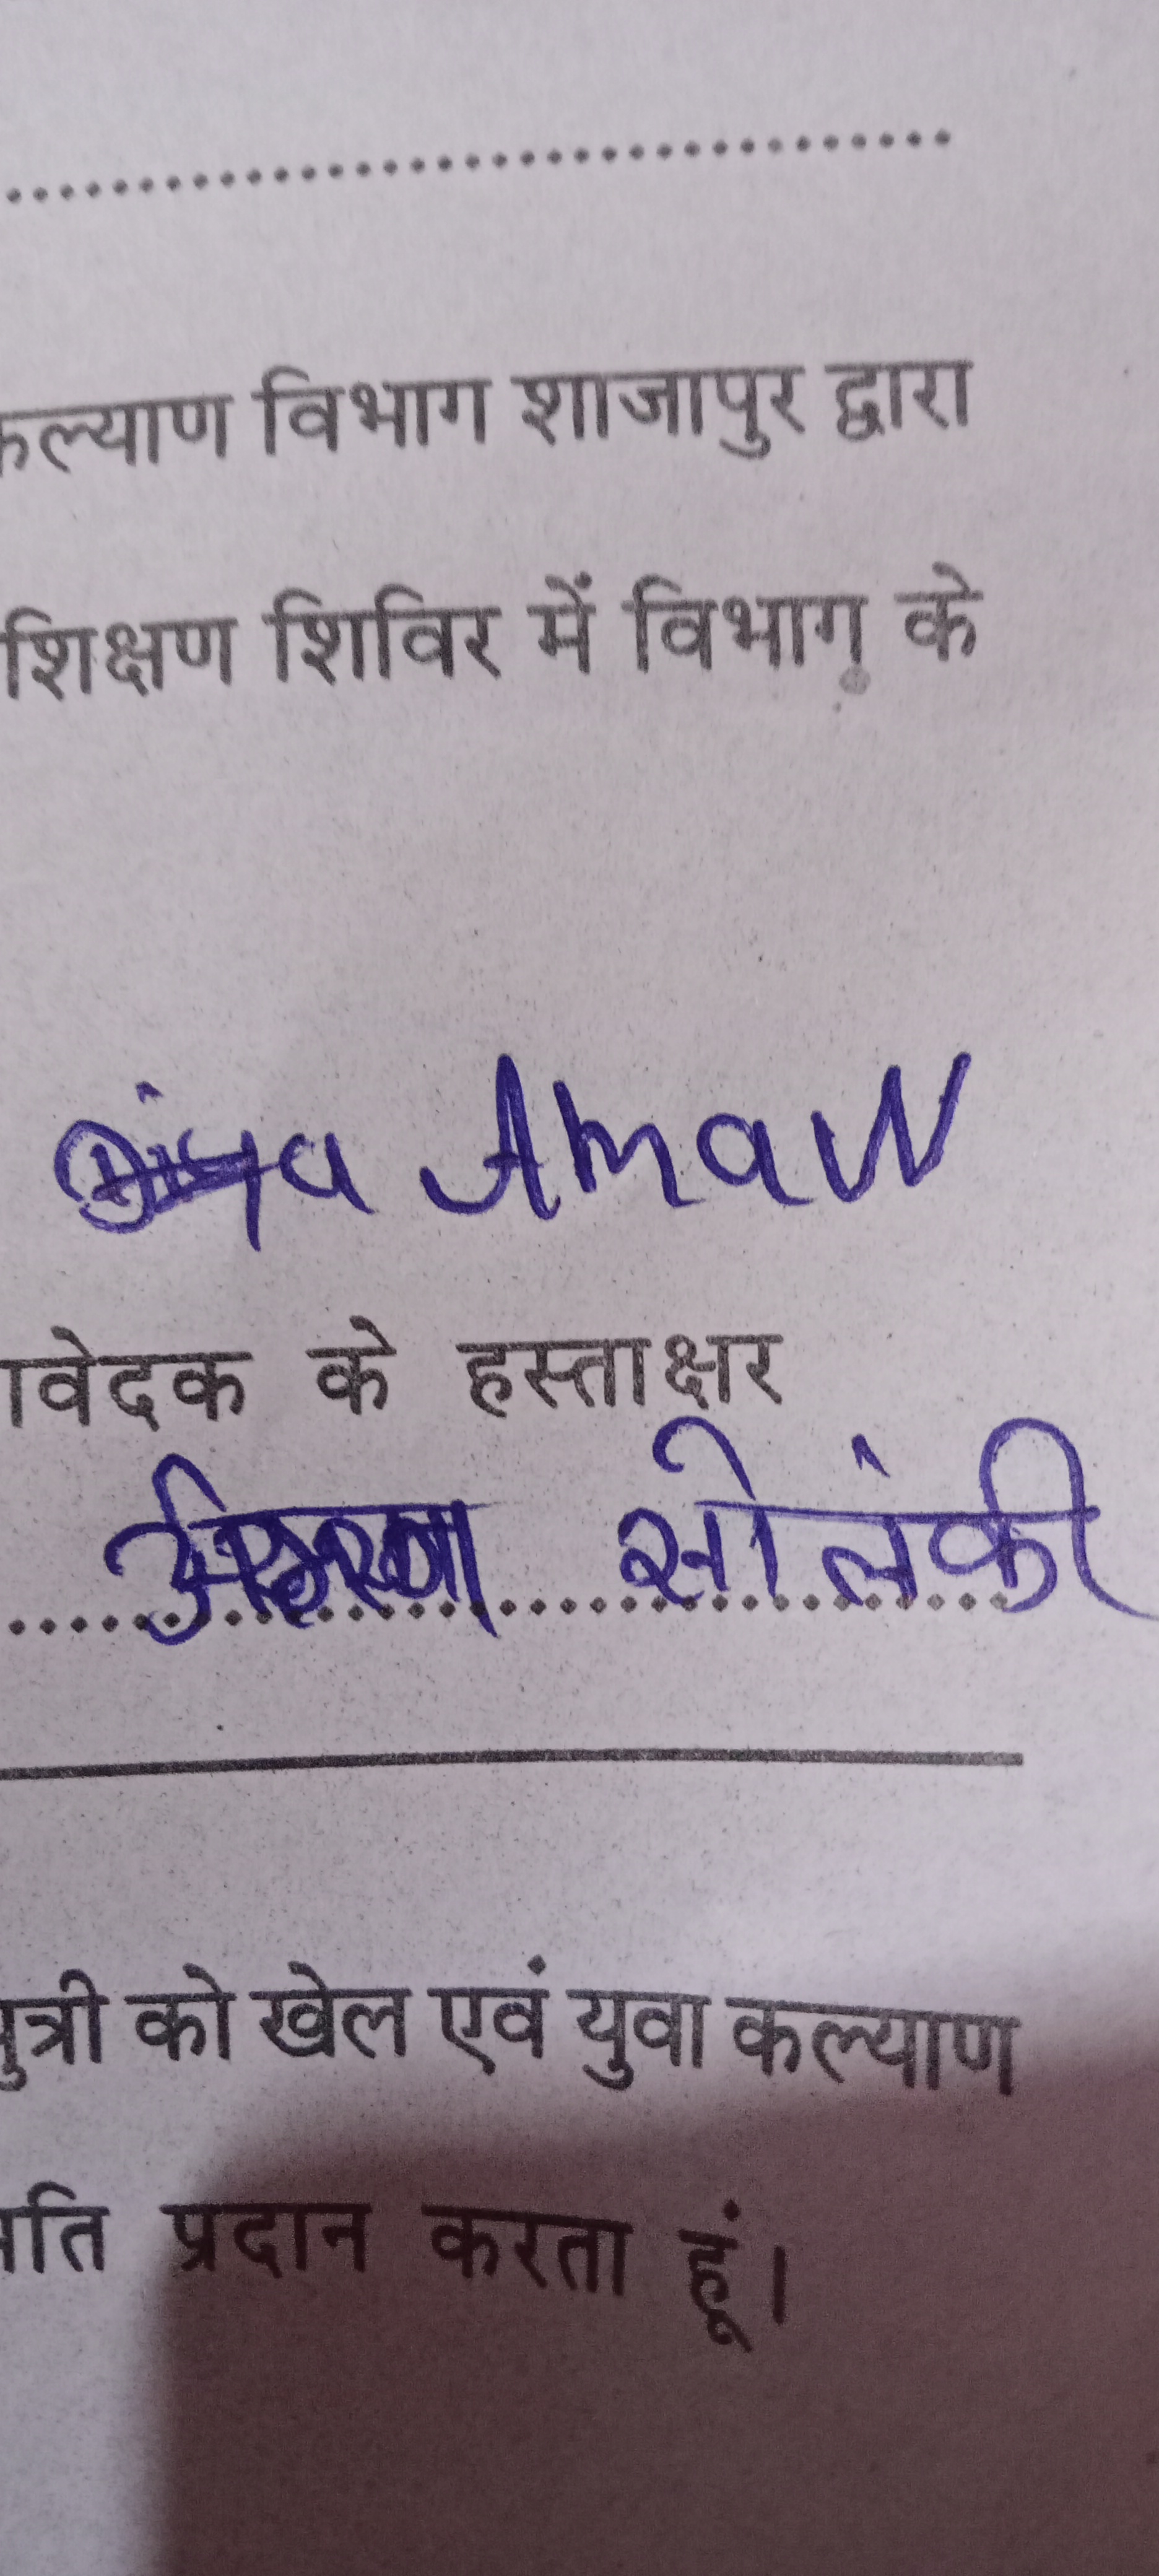 कल्याण विभाग शाजापुर द्वारा
शिक्षण शिविर में विभाग के
वेदक के हस्ताक्षर
सोलंकी
पुत्री को खेल एवं युवा कल्याण
मति प्रदान करता हूं।